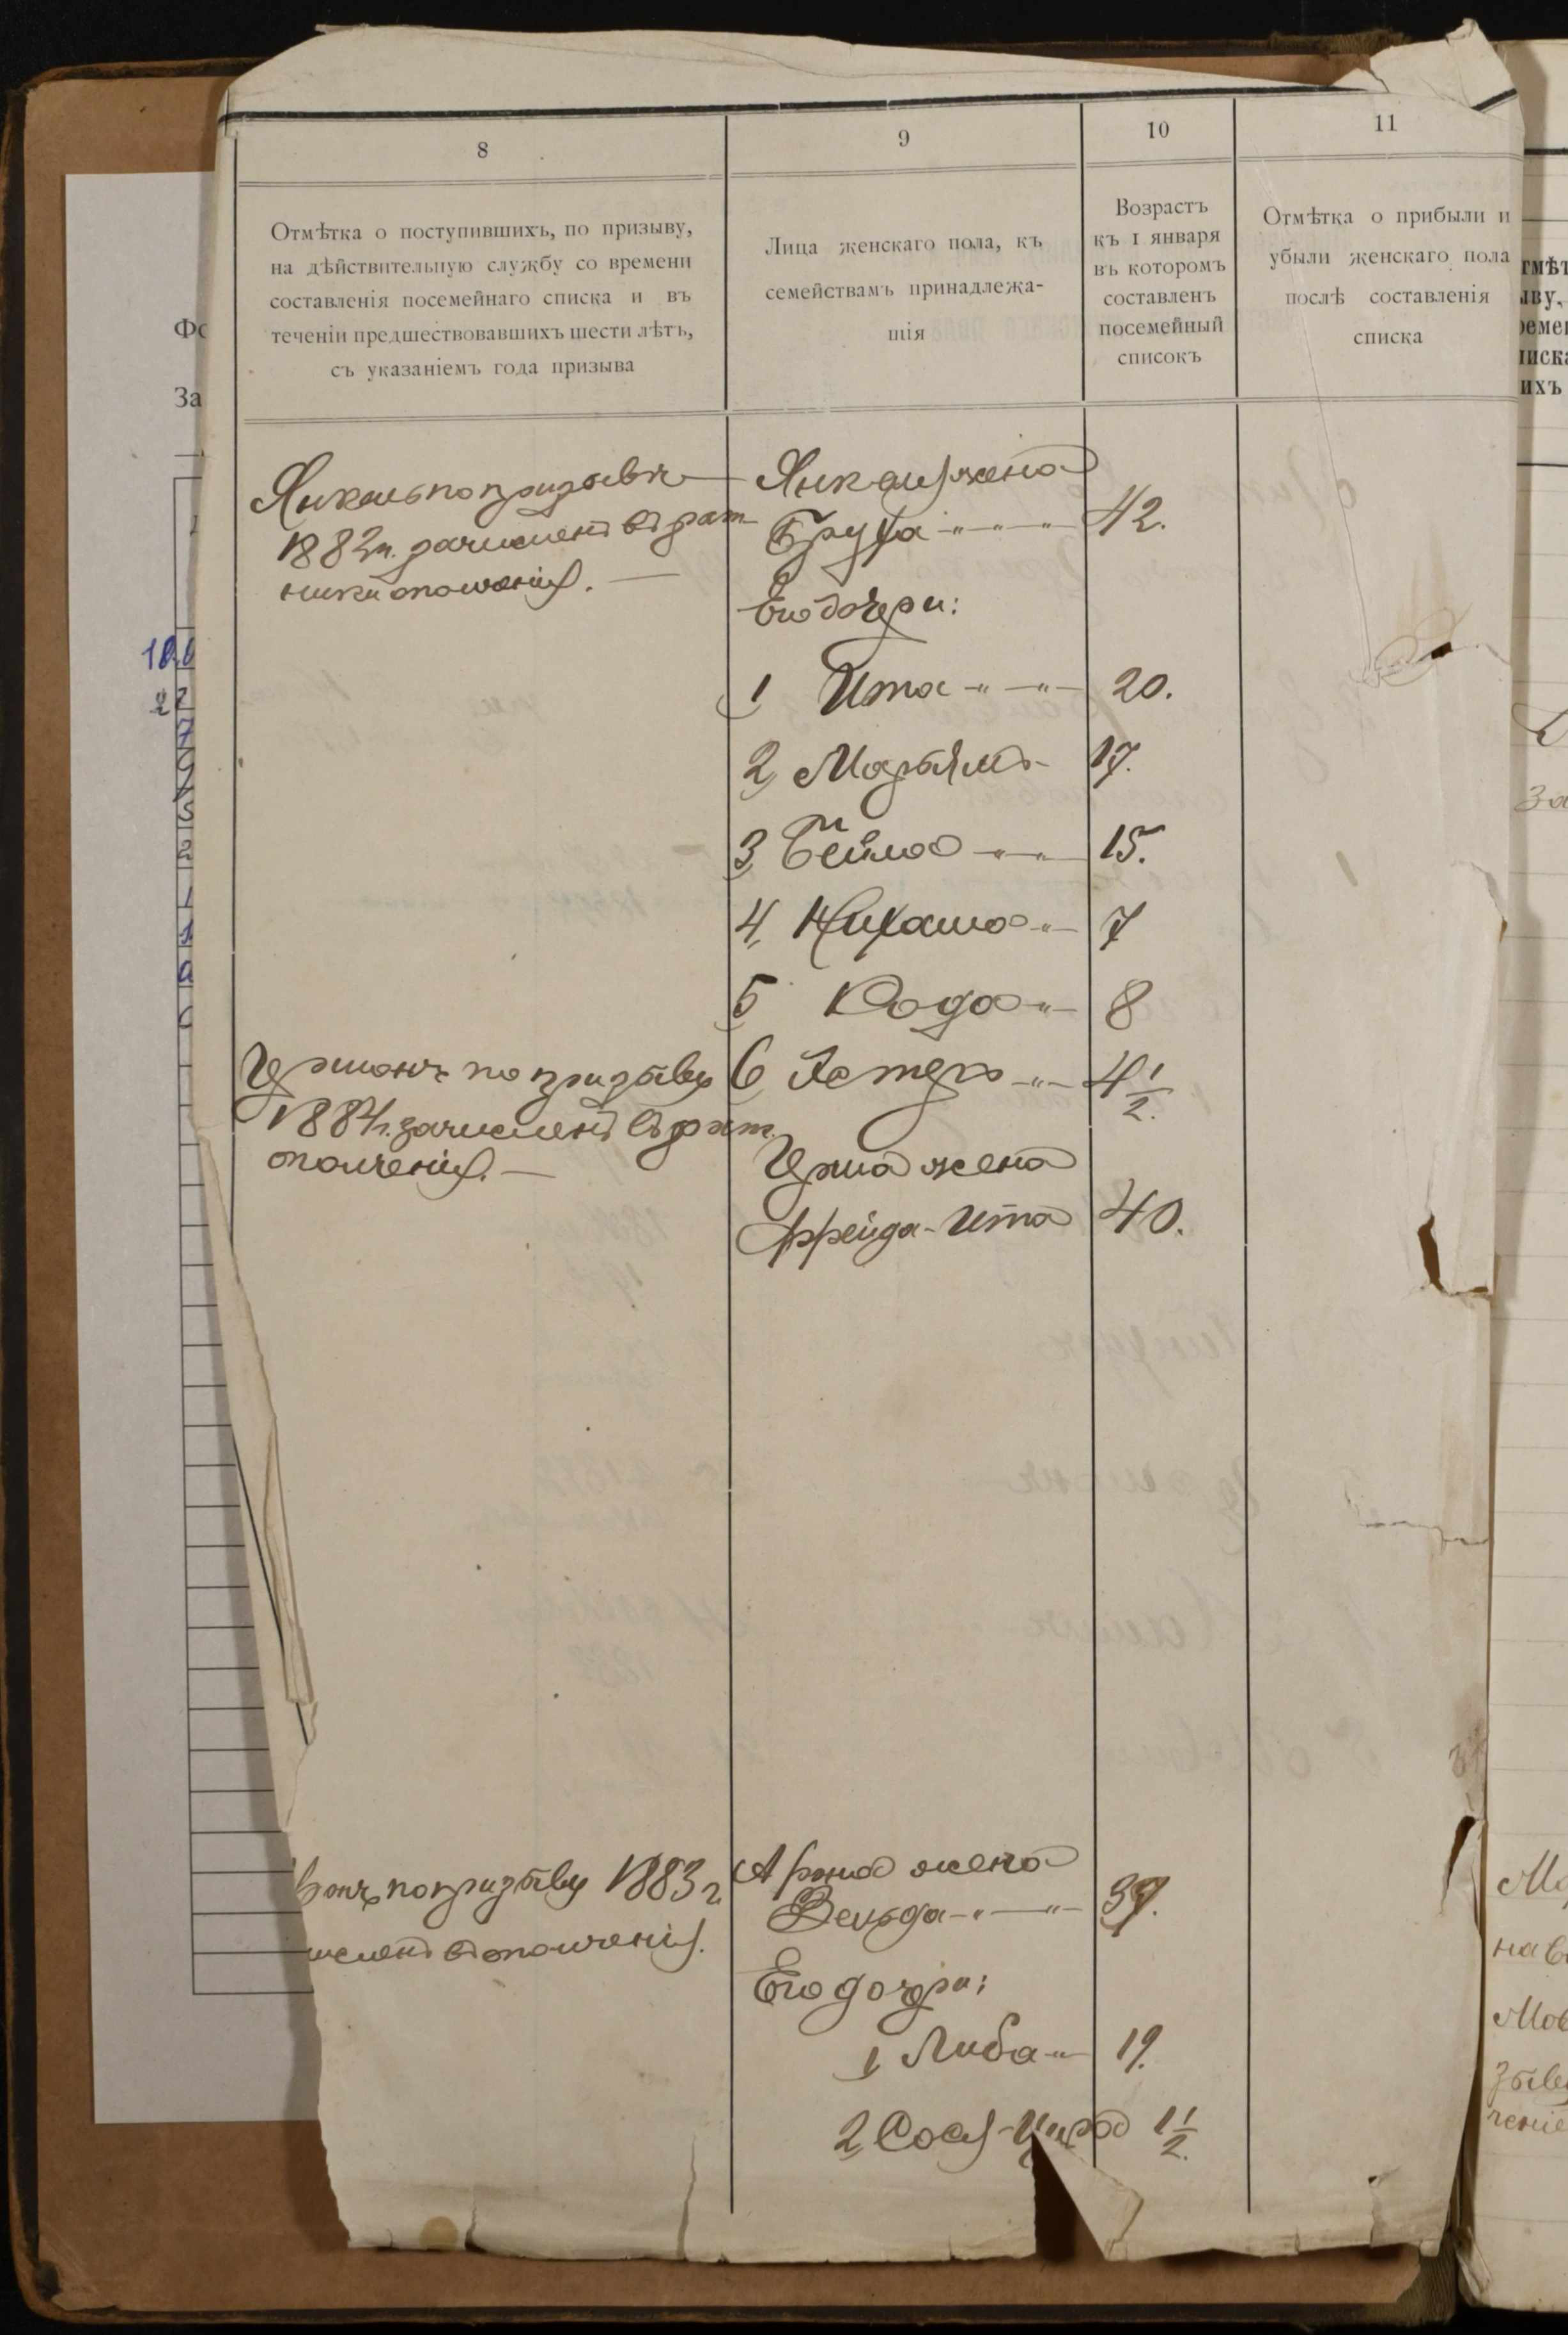 8
9
10
11
Отмѣтка о поступившихъ, по призыву,
на дѣйствительную службу со времени
составленія посемейнаго списка и въ
теченіи предшествовавшихъ шести лѣтъ,
съ указаніемъ года призыва
Лица женскаго пола, къ
семействамъ принадлежа-
щія
Возрастъ
къ 1 января
въ которомъ
составленъ
посемейный
списокъ
Отмѣтка о прибыли и
убыли женскаго пола
послѣ составленія
списка
Янкель по призыву
1882 г. зачисленъ въ рат-
ники ополченія.
Янкеля жена
Груня 42.
Его дочери:
1 Ита 20.
2 Марьямъ 17.
3 Бейла 15.
4 7
5 8
6 Эстеръ 4 1/2.
по призыву
1884 г. зачисленъ въ рат.
ополченія.
жена
Фрейда-Ита 40.
по призыву 1883 г.
въ ополченія.
Арона жена
Зельда 37.
Его дочери:
1 Либа 19.
2 Сося- 1 1/2.